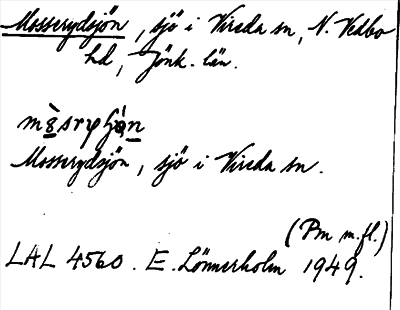 Mosserydsjön, sjö i Vireda sn, N. Vedbo
hd, Jönk. län.
Mosserydsjön, sjö i Vireda sn.
(Pm m.fl.)
LAL 4560. E. Lönnerholm 1949.